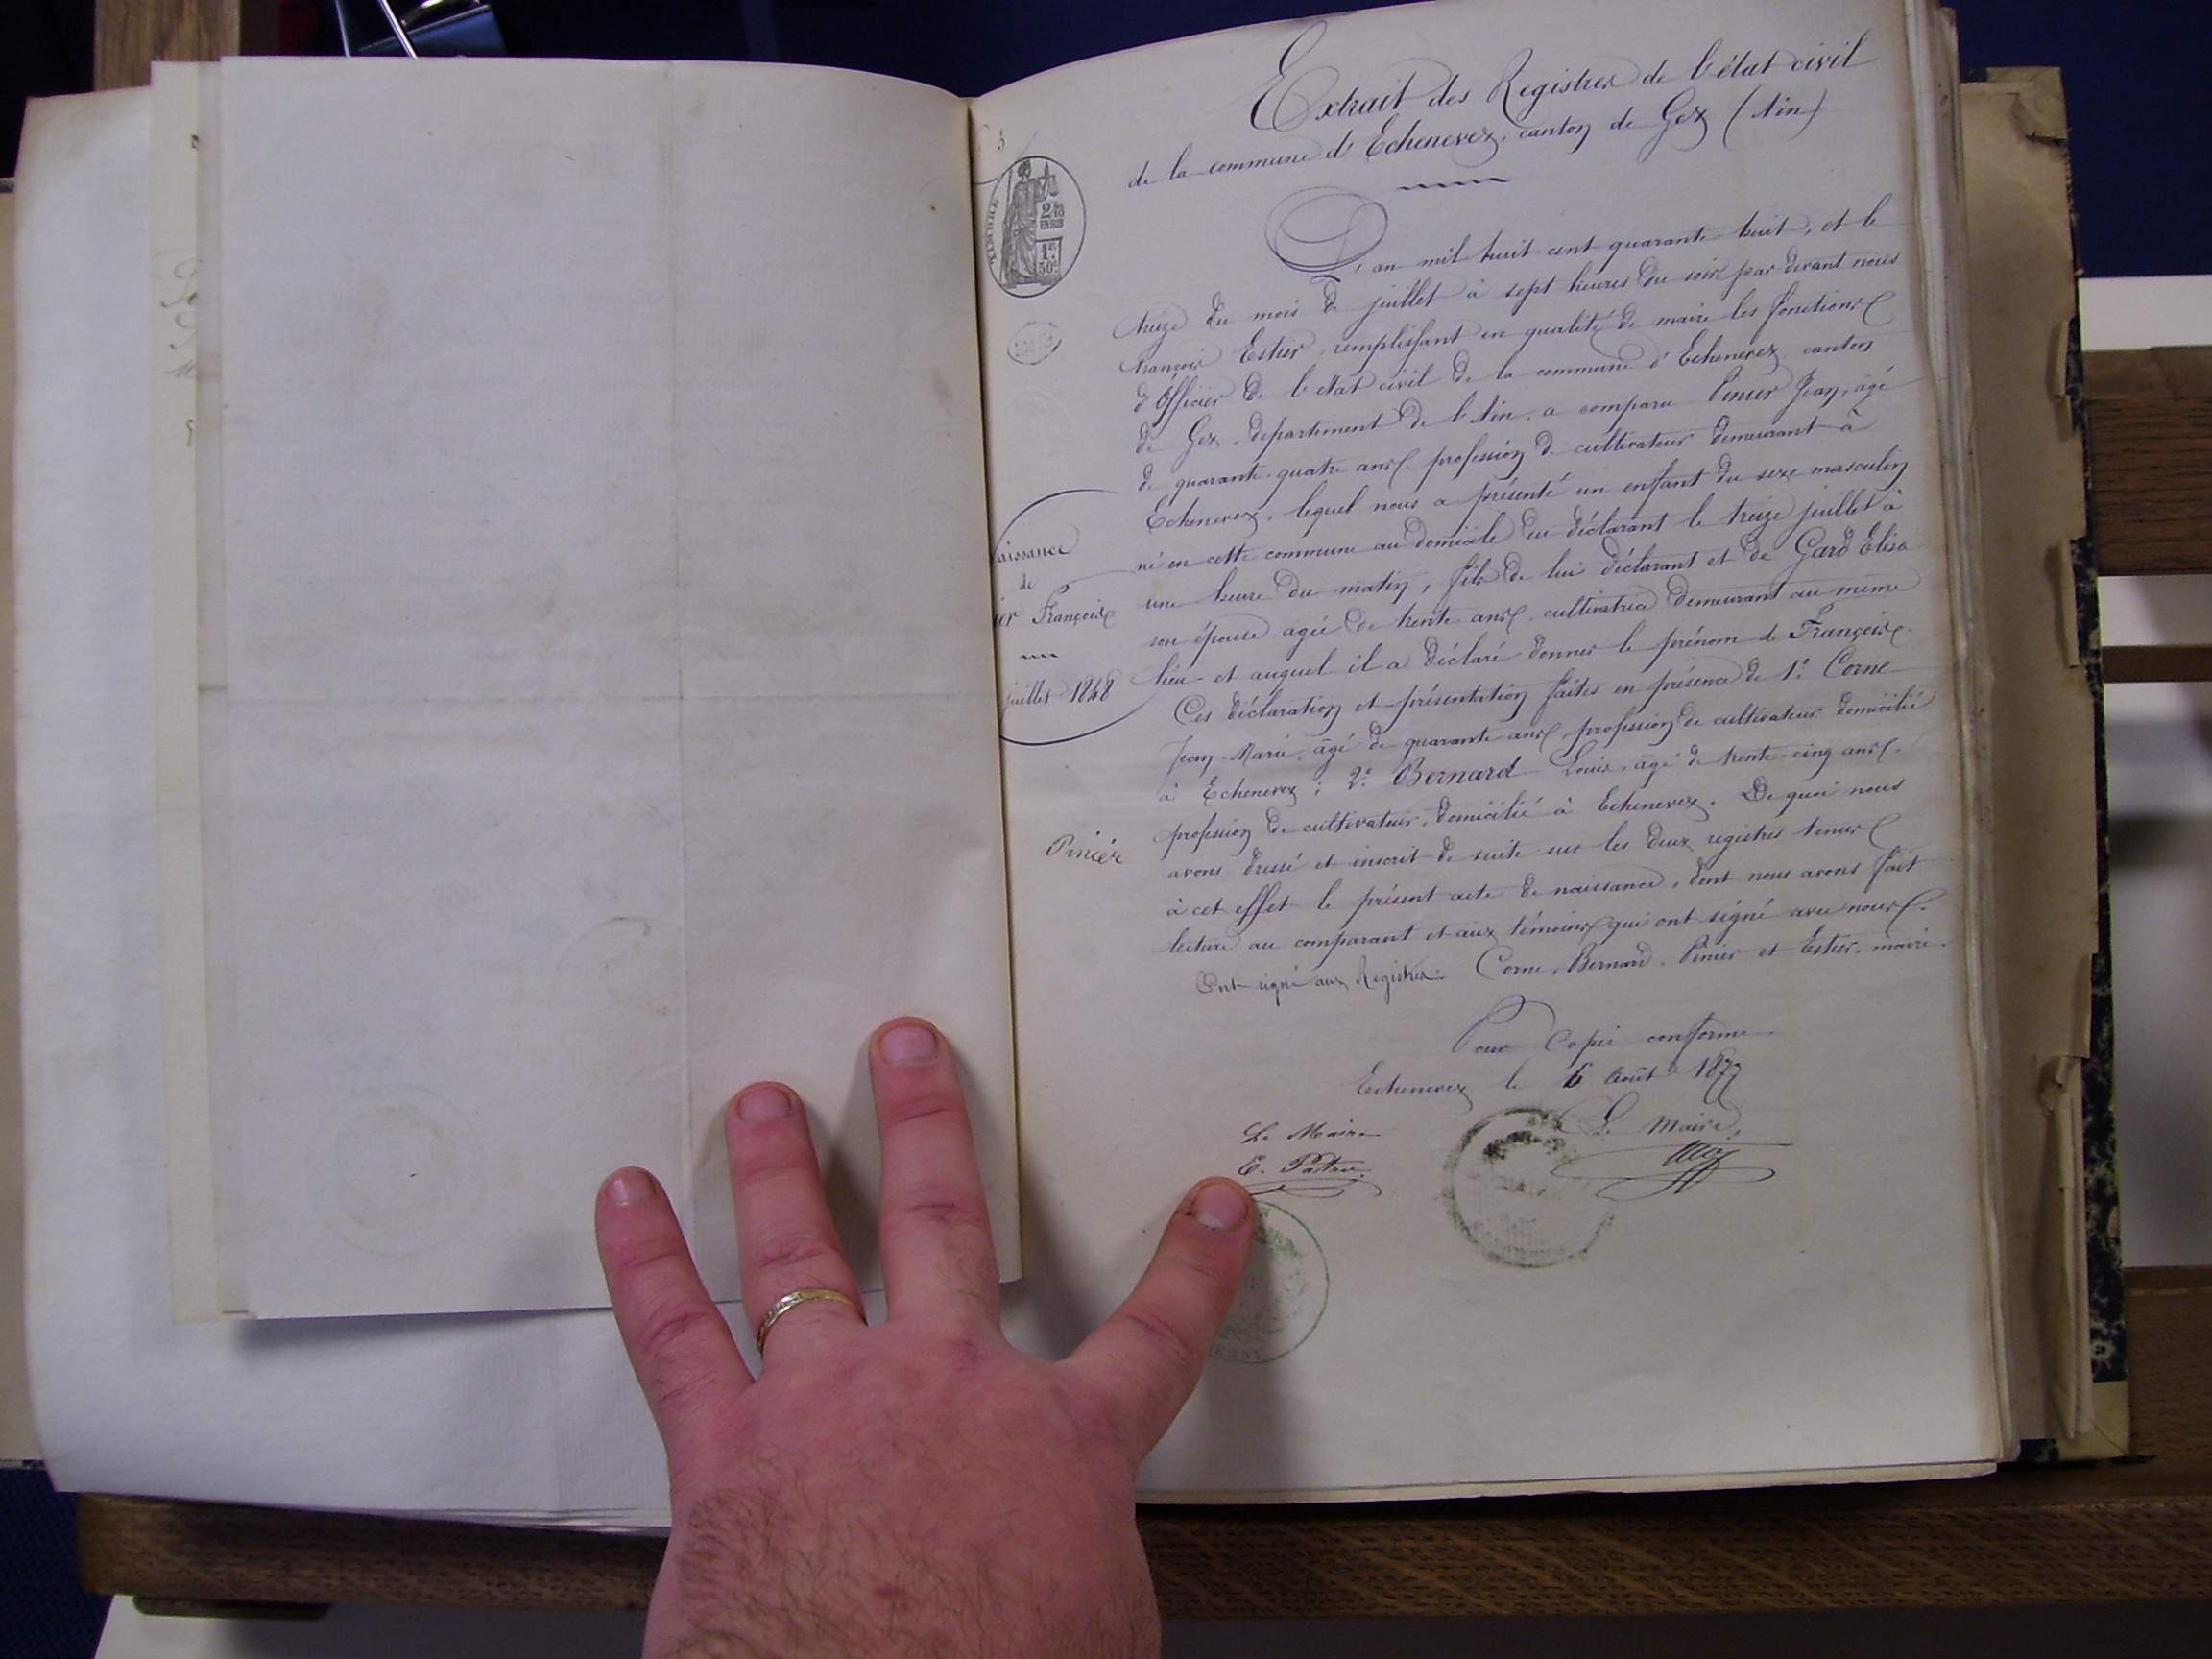 3
TIMBRE
2/10
EN SUS
1F.
50c
Extrait des Registres de l'état civil
de la commune d'Echenevex, canton de Gex (Ain)
L'an mil huit cent quarante huit, et le
treize du mois de juillet à sept heures du soir par devant nous
François Estier, remplissant en qualité de maire les fonctions
d'Officier de l'état civil de la commune d'Echenevex, canton
de Gex, département de l'Ain, a comparu Pinier Jean, âgé
de quarante-quatre ans, profession de cultivateur demeurant à
Echenevex, lequel nous a présenté un enfant du sexe masculin
né en cette commune au domicile du déclarant le treize juillet à
une heure du matin, fils de lui déclarant et de Gard Elisa
son épouse agée de trente ans, cultivatrice demeurant au même
lieu et auquel il a déclaré donner le prénom de François.
Ces déclaration et présentation faites en présence de 1º Corne
Jean-Marie, âgé de quarante ans, profession de cultivateur domicilié
à Echenevex ; 2º Bernard Louis, âgé de trente-cinq ans,
profession de cultivateur, domicilié à Echenevex. De quoi nous
avons dressé et inscrit de suite sur les deux registres tenus
à cet effet le présent acte de naissance, dont nous avons fait
lecture au comparant et aux témoins qui ont signé avec nous.
Ont signé aux Registres: Corne, Bernard, Pinier et Estier, maire.
aissance
de
ier François
juillet 1848
Pinier
Pour Copie conforme.
Echenevex le 6 Août 1877
Le Maire,
Le Maire
E. Patru